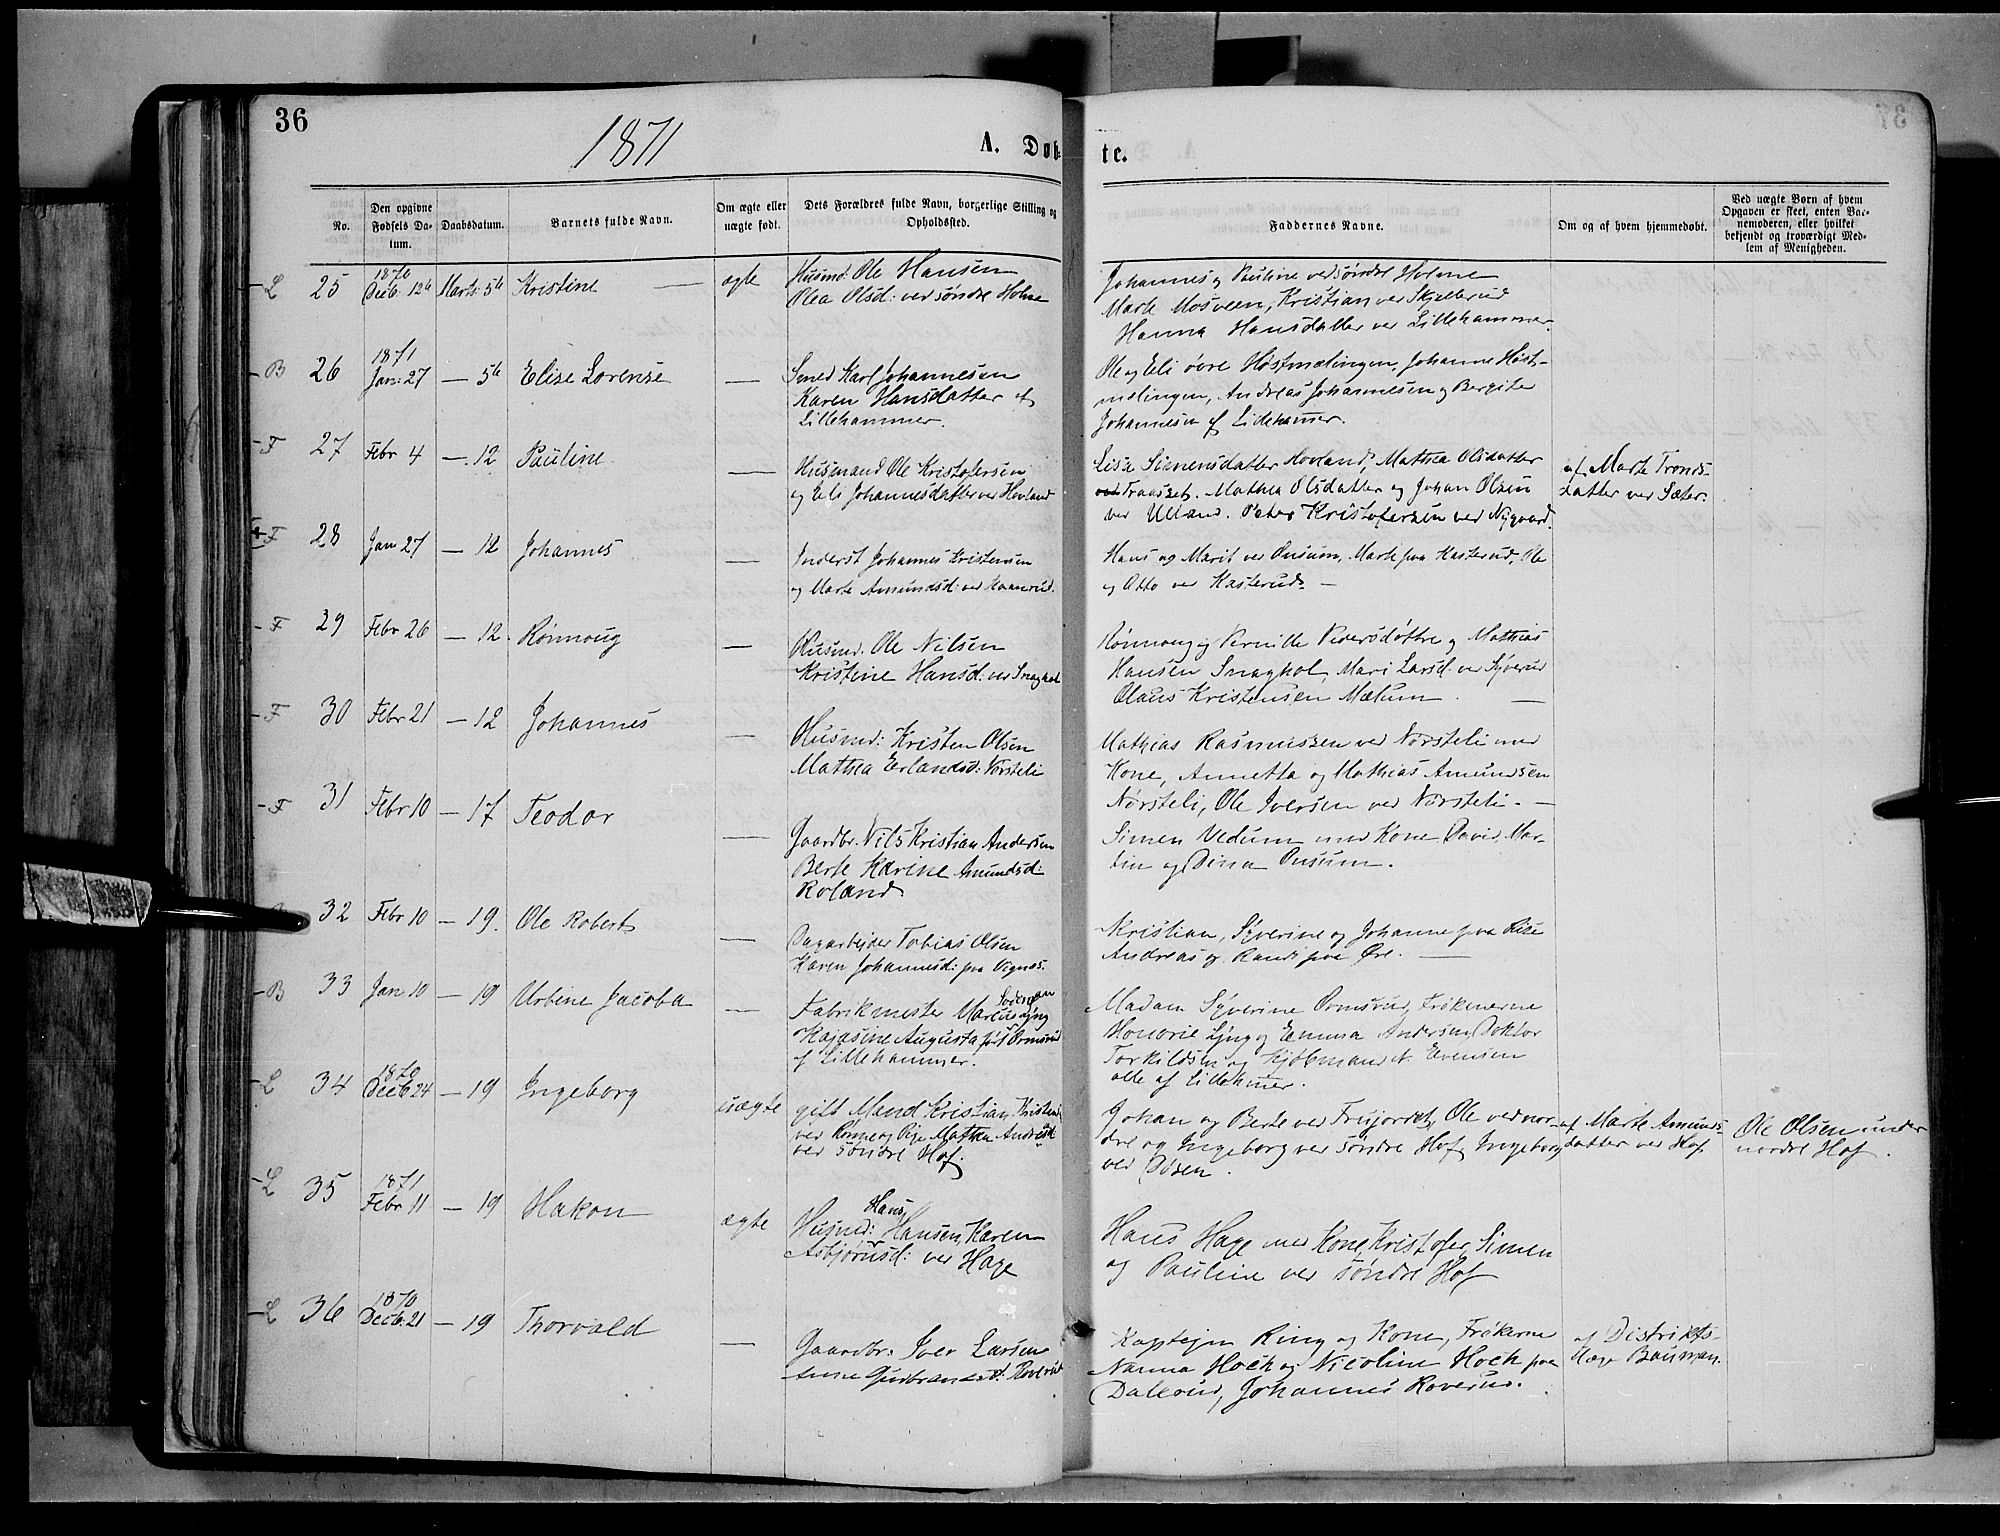 36
1871
A. Døb-
te.
37
No.
Den opgivne Fødsels Da-
tum.
Daabsdatum.
Barnets fulde Navn.
Om ægte eller
uægte født.
Dets Forældres fulde Navn, borgerlige Stilling og
Opholdssted.
Faddernes Navne.
Om og af hvem hjemmedøbt.
Ved uægte Børn af hvem
Opgaven er skeet, enten Bar-
nemoderen, eller hvilket
bekjendt og troværdigt Med-
lem af Menigheden.
L 25 1870 Decb: 12te Marts 5te Kristine ægte
Husmd: Ole Hansen
Olea Olsd: ved søndre Holme
Johannes og Pauline ved søndre Holme
Marte Mosveen, Kristian ver Skjellerud
Hanna Hansdatter ver Lillehammer.
B 26 1871 Jan: 27 — 5te Elise Lorense —
Smed Karl Johannesen
Karen Hansdatter af
Lillehammer.
Ole og Eli øvre Høstmælingen, Johanne Høst-
mælingen, Andreas Johannesen og Bergitte
Johannesen af Lillehamer.
F 27 Febr 4 — 12 Pauline —
Husmand Ole Kristofersen
og Eli Johannesdatter ver Hovland
Lisa Simensdatter Hovland, Mathea Olsdatter
Traaset. Mathea Olsdatter og Johan Olsen
ver Ulland. Peter Kristofersen ved Nygaard.
af Marte Tronds-
datter ver Sæter.
F 28 Jan 27 — 12 Johannes —
Inderst Johannes Kristensen
og Marte Amundsd: ver
Hans og Marit ver Onsum, Marte paa Kasterud, Ole
og Otto ver Kasterud. —
F 29 Febr 26 — 12 Rønnoug —
Husmd. Ole Nilsen
Kristine Hansd: ver Snaghol
Rønnoug og Pernille Pedersdøttre og Mathias
Hansen Snaghol, Mari Larsd: ver Syverud
Olaus Kristensen Mælum. —
F 30 Febr 21 — 12 Johannes —
Husmd: Kristen Olsen
Mathea Erlandsd: Nørsteli
Mathias Rasmussen ved Nørsteli med
Kone, Annetta og Mathias Amundsen
Nørsteli, Ole Iversen ved Nørsteli. —
F 31 Febr 10 — 17 Teodor —
Gaardbr. Nils Kristian Andersen
Berte Karine Amundsd:
Roland
Simen Vedum med Kone David, Mar-
tin og Dina Onsum.
32 Febr 10 — 19. Ole Robert —
Dagarbejder Tobias Olsen
Karen Johannesd: paa Vignes.
Kristian, Syverine og Johanne paa Rise
Andreas og Randi paa Øre. —
B 33 Jan 10 — 19 Urbine Jacoba —
Fabrikmester Marcus Lyng
Kajasine Augusta født Ormsrud
af Lillehammer.
Madam Syverine Ormsrud, Frøkenerne
Honorie Lyng og Emma Andersen, Doktor
Torkildsen og Kjøbmand N. Evensen
alle af Lillehmer.
L 34 1870 Decb 24 — 19 Ingeborg uægte
gift Mand Kristian Kristens:
ver Rønne og Pige Mathea Andersd:
ver søndre Hof.
Johan og Berte ved Frujordet, Ole ved nor-
dre og Ingeborg ver søndre Hof, Ingeborg
ver Døsen.
af Marte Amunds-
datter ver Hof.
Ole Olsen under
nordre Hof.
L 35 1871 Febr 11 — 19 Hakon ægte
Husmd: Hans Hansen, Karen
Asbjørnsd: ver Hage
Hans Hage med Kone, Kristofer, Simen
og Pauline ver søndre Hof
L 36 1870 Decb. 21 — 19 Thorvald —
Gaardbr: Iver Larsen
Anne Gudbrandsd: Roverud
Kaptejn Ring og Kone, Frøknerne
Nanna Hoch og Nicoline Hoch paa
Dalerud, Johannes Roverud.
af Distrikts-
læge Bauman.